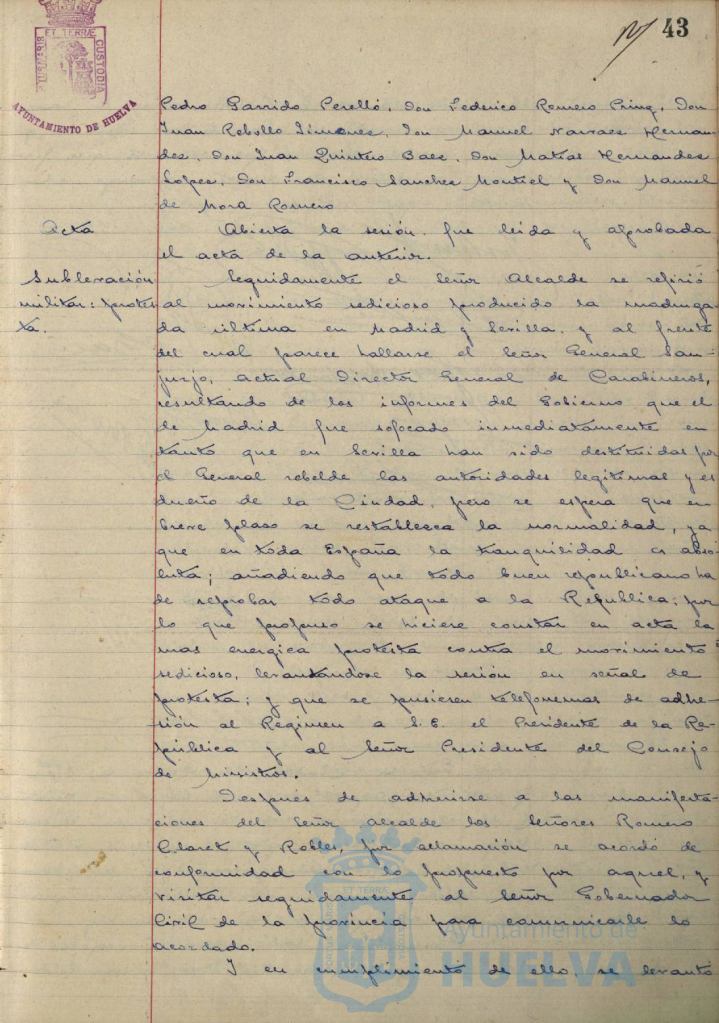 43
PORTUS MARIS
ET TERRÆ
CUSTODIA
AYUNTAMIENTO DE HUELVA
Pedro Garrido Perelló, Don Federico Romero Pring, Don
Juan Rebollo Jimenes, Don Manuel Narvaes Hernan-
des, Don Juan Quintero Baes, Don Matias Hernandes
Lopes, Don Francisco Sanches Montiel y Don Manuel
de Mora Romero
Acta
Abierta la sesión, fue leida y aprobada
el acta de la anterior.
Sublevación
militar: protes-
ta.
Seguidamente el Señor Alcalde se refirió
al movimiento sedicioso producido la madruga-
da ultima en Madrid y Sevilla, y al frente
del cual parece hallarse el Señor General San-
jurjo, actual Director General de Carabineros,
resultando de los informes del Gobierno que el
de Madrid fue sofocado inmediatamente en
tanto que en Sevilla han sido destituidas por
el General rebelde las autoridades legitimas y es
dueño de la Ciudad, pero se espera que en
breve plaso se restablesca la normalidad, ya
que en toda España la tranquilidad es abso-
luta; añadiendo que todo buen republicano ha
de reprobar todo ataque a la Republica; por
lo que propuso se hiciere constar en acta la
mas energica protesta contra el movimiento
sedicioso, levantandose la sesión en señal de
protesta; y que se pusiesen telefonemas de adhe-
sión al Regimen a S.E. el Presidente de la Re-
pública y al Señor Presidente del Consejo
de Ministros.
Después de adherirse a las manifesta-
ciones del Señor Alcalde los Señores Romero
Claret y Robles, por aclamación se acordó de
conformidad con lo propuesto por aquel, y
visitar seguidamente al Señor Gobernador
Civil de la provincia para comunicarle lo
acordado.
Y en cumplimiento de ello, se levantó
Ayuntamiento de
HUELVA